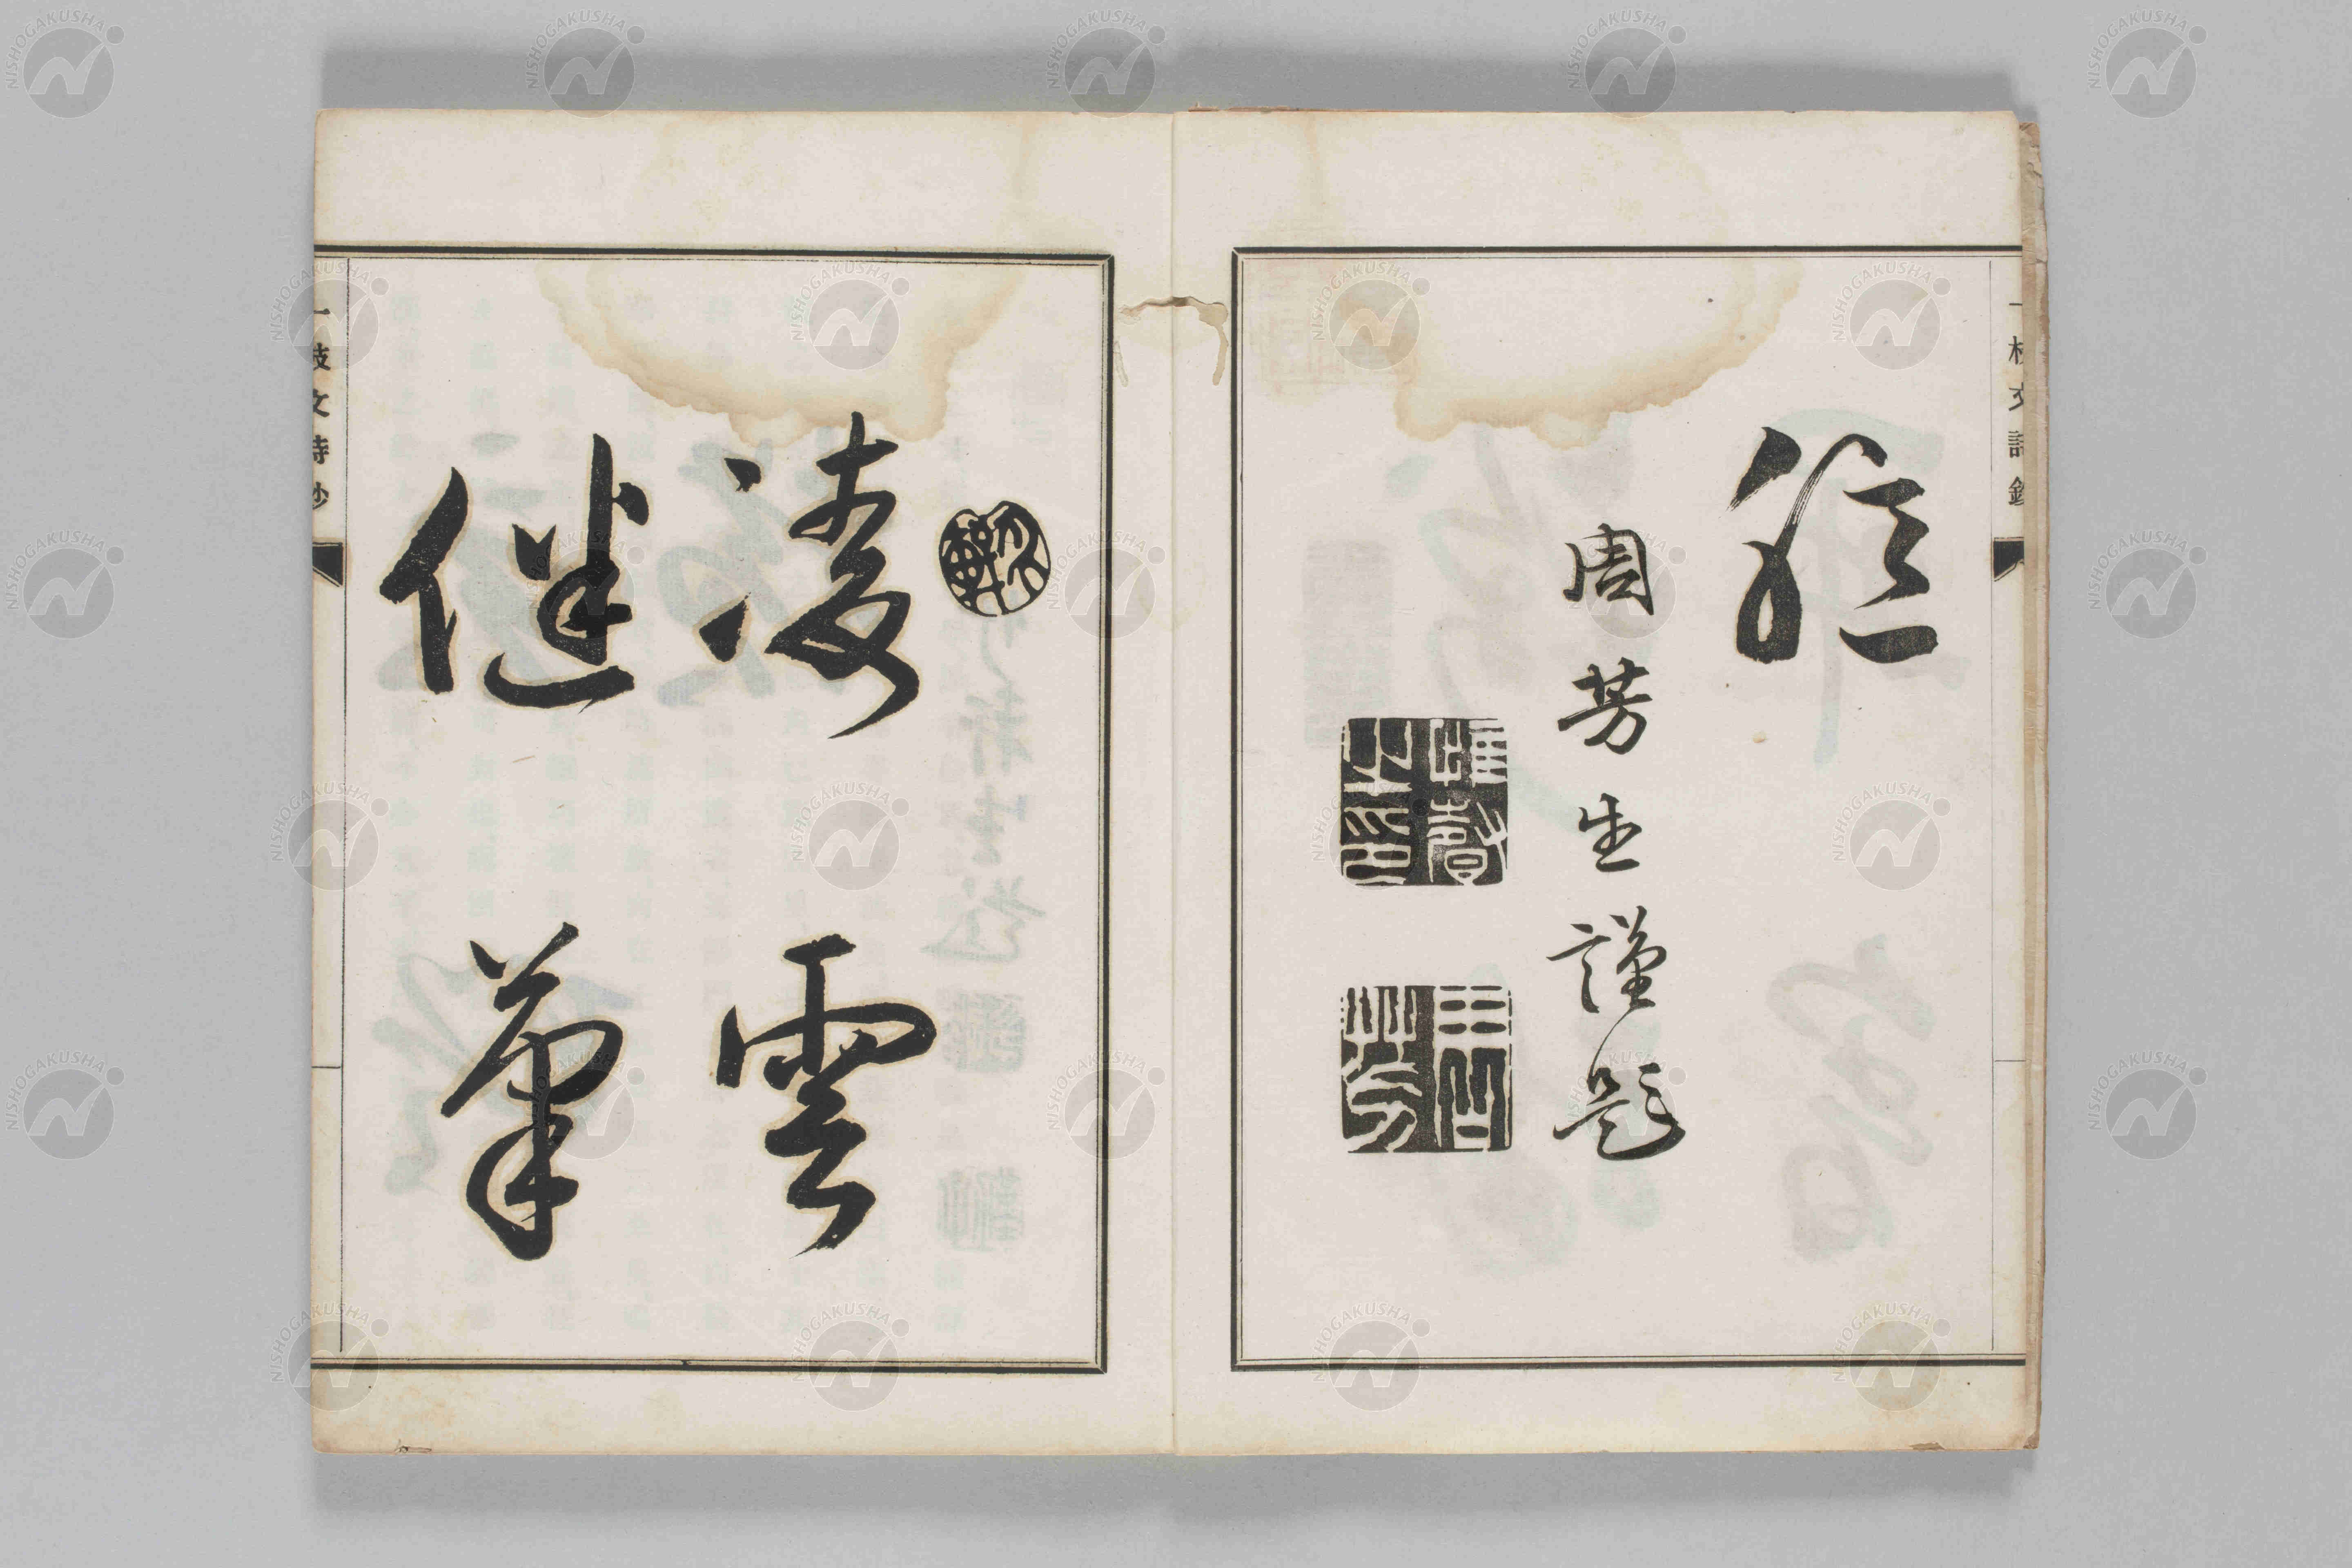 一枝文詩鈔
周芳生謹題
凌雲
健筆
一枝文詩鈔
NISHOGAKUSHA